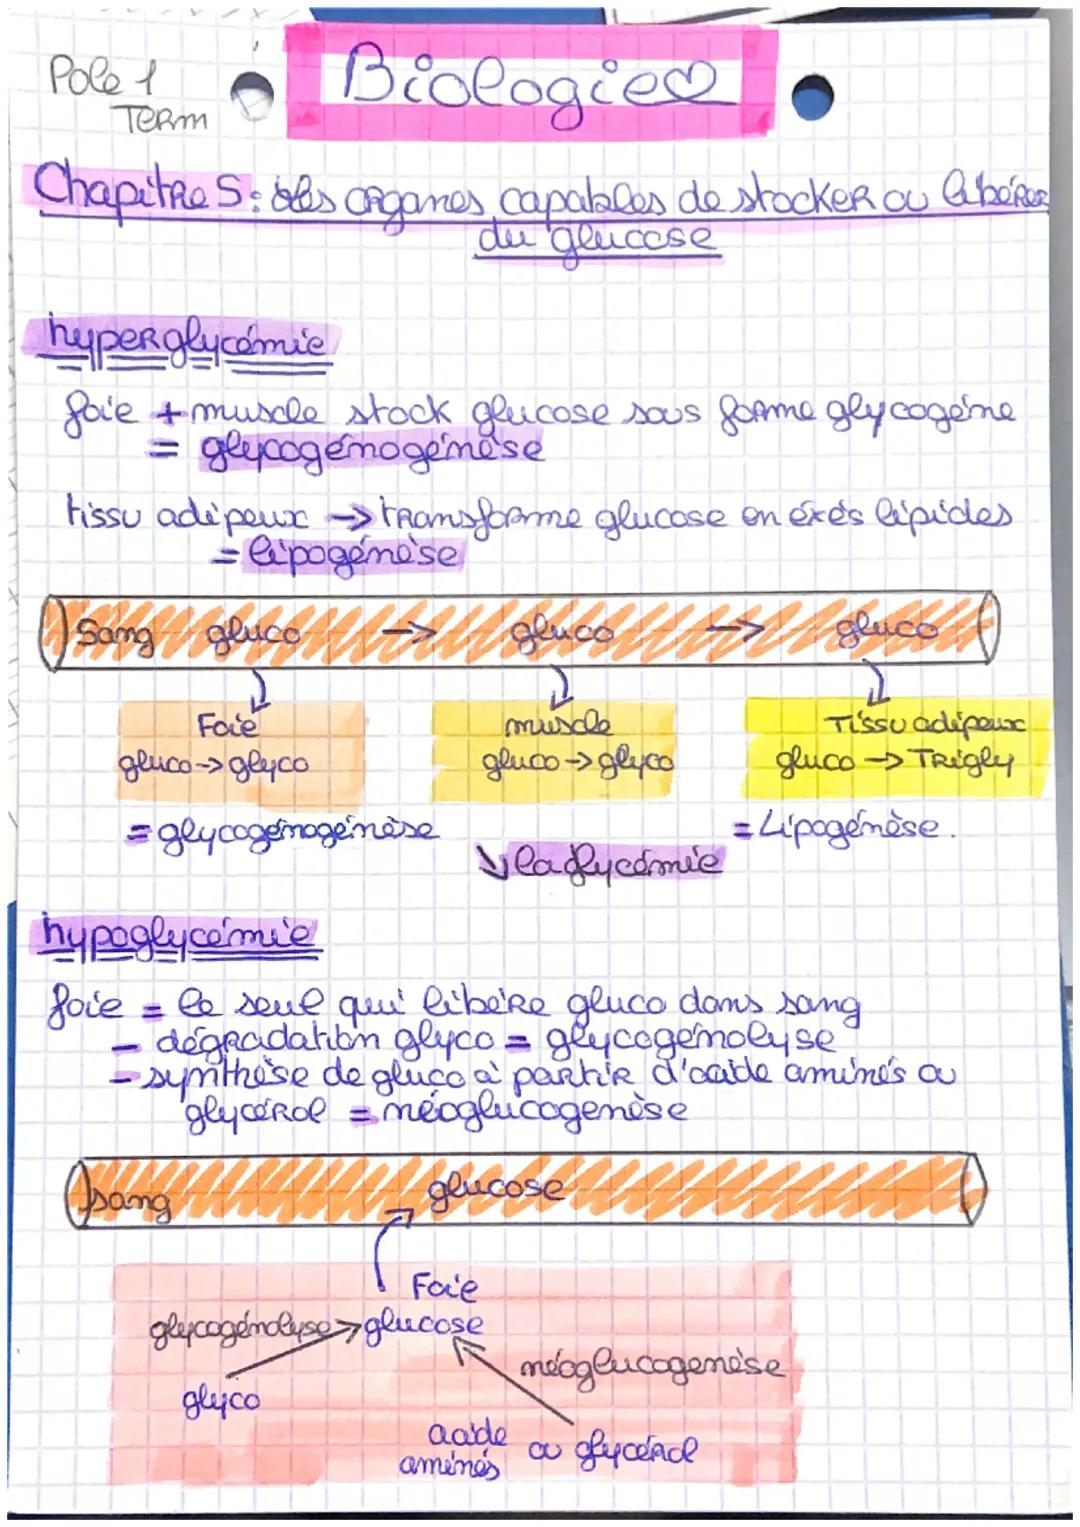 Pole 1
Term
Biologie
Chapitre 5: les organes capables de stocker ou libérer
du glucose
hyperglycémie
foie + muscle stock glucose sous forme glycogène
= glycogénogénèse
tissu adipeux → transforme glucose en éxés lipides
= lipogénèse
Sang gluco → gluco → gluco
Foie muscle Tissu adipeux
gluco → glyco gluco → glyco gluco → Trigly
= glycogénogénèse = Lipogénèse.
↘ la glycémie
hypoglycémie
foie = le seul qui libère gluco dans sang
- dégradation glyco = glycogénolyse
- synthèse de gluco à partir d'acide aminés ou
glycérol = néoglucogenèse
sang glucose
Foie
glycogénolyse → glucose
néoglucogenèse
glyco
acide ou glycérol
aminés